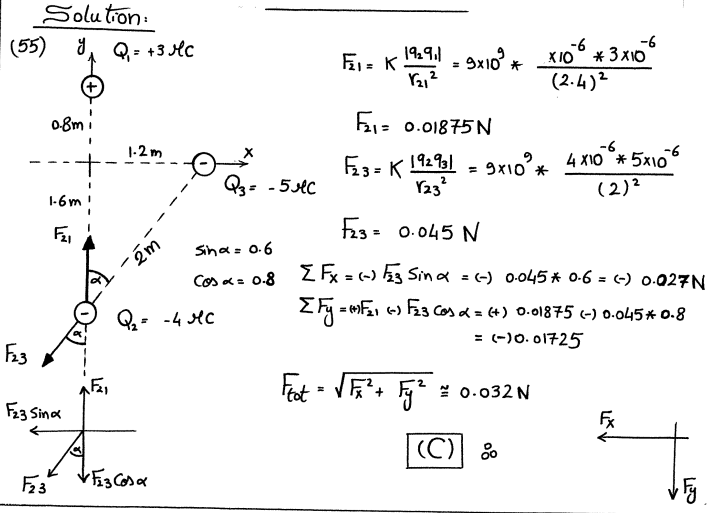 Solution:
(55) y Q₁ = +3 μC
+
0.8m
1.2m
x
-
Q₃ = -5 μC
1.6m
F₂₁
2m
α
Sinα = 0.6
Cosα = 0.8
-
Q₂ = -4 μC
α
F₂₃
F₂₁
F₂₃ Sinα
α
F₂₃
F₂₃ Cosα
F₂₁ = K |q₂q₁| / r₂₁² = 9x10⁹ * x10⁻⁶ * 3x10⁻⁶ / (2.4)²
F₂₁ = 0.01875 N
F₂₃ = K |q₂q₃| / r₂₃² = 9x10⁹ * 4x10⁻⁶ * 5x10⁻⁶ / (2)²
F₂₃ = 0.045 N
Σ Fx = (-) F₂₃ Sinα = (-) 0.045 * 0.6 = (-) 0.027N
Σ Fy = (+)F₂₁ (-) F₂₃ Cosα = (+) 0.01875 (-) 0.045 * 0.8
= (-) 0.01725
Ftot = √(Fx² + Fy²) ≅ 0.032 N
(C)
Fx
Fy